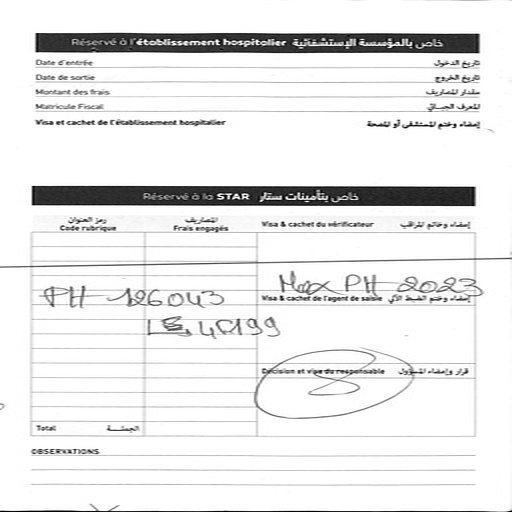 Réservé à l'établissement hospitalier خاص بالمؤسسة الإستشفائية
Date d'entrée تاريخ الدخول
Date de sortie تاريخ الخروج
Montant des frais مقدار المصاريف
Matricule Fiscal المعرف الجبائي
Visa et cachet de l'établissement hospitalier إمضاء وختم المستشفى أو المصحة
Réservé à la STAR خاص بتأمينات ستار
رمز العنوان المصاريف
Code rubrique Frais engagés Visa & cachet du vérificateur إمضاء وخاتم المراقب
PH 126043 Max PH 2023
Visa & cachet de l'agent de saisie إمضاء وختم الضبط الآلي
Décision et visa du responsable قرار وإمضاء المسؤول
8
Total الجملة
OBSERVATIONS